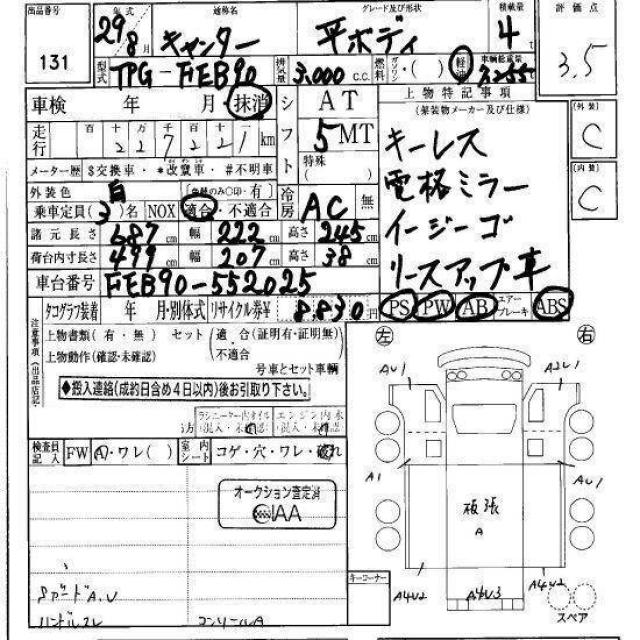 出品番号
131
年式
29年
8月
通称名
キャンター
グレード及び形状
平ボディ
積載量
4t
評価点
3.5
型式
TPG-FEB90
排気量
3.000 c.c.
燃料
ガソリン・( )
軽油
車輌総重量
車検 年 月 抹消
走行
百 十 万 千 百 十 一
2 2 7 2 2 1 km
メーター歴 $交換車・*改竄車・#不明車
シフト
AT
5 MT
特殊
( )
上物特記事項
(架装物メーカー及び仕様)
キーレス
電格ミラー
イージーゴ
リースアップ車
外装
C
内装
C
外装色
白
有
乗車定員(3)名 NOX 適合・不適合
冷房
AC
無
諸元長さ 687cm 幅 222cm 高さ 245cm
荷台内寸長さ 499cm 幅 207cm 高さ 38cm
車台番号
FEB90-552025
PS PW AB エアーブレーキ ABS
タコグラフ装着 年 月・別体式
リサイクル券¥ 8830円
注意事項(出品店記
上物書類(有・無) セット(適合(証明有・証明無)
上物動作(確認・未確認) (不適合
号車とセット車輌
◆搬入連絡(成約日含め4日以内)後お引取り下さい。
検査員記入
FW
A・ワレ( )
室内シート
コゲ・穴・ワレ・破れ
オークション査定済
IAA
左
右
AU1
A2U1
A1
AU1
板張
A
A4U2
A4U3
A4U2
スペア
キーコーナー
ハンドルスレ